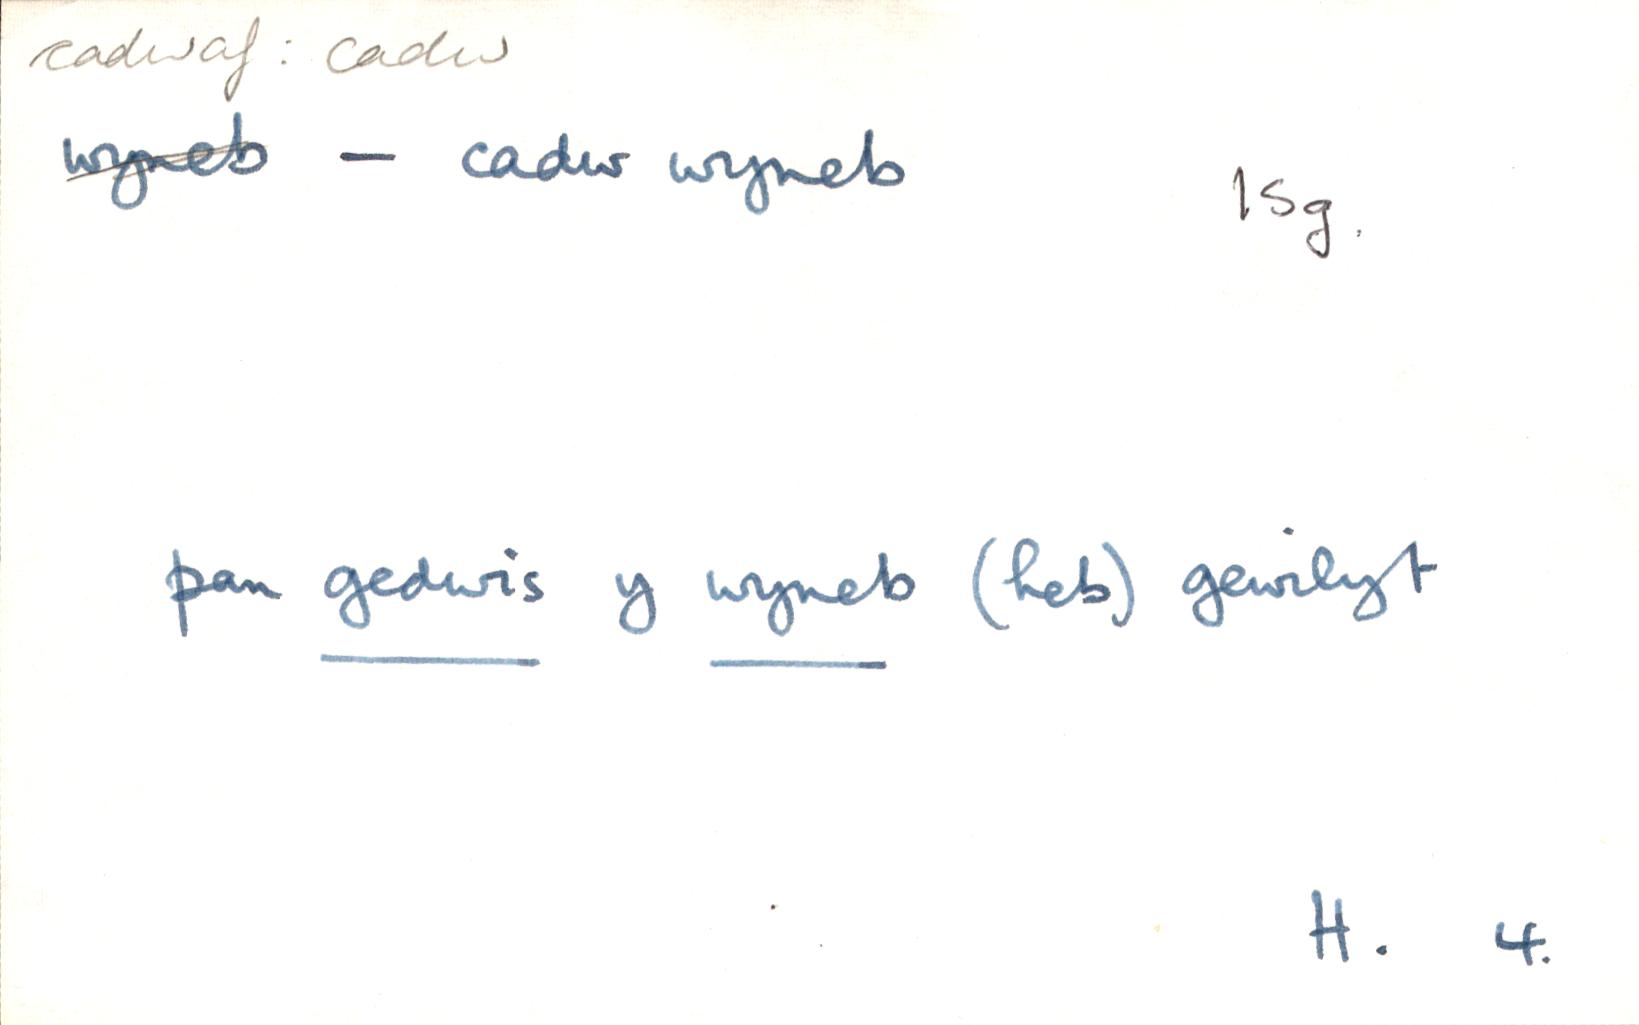 cadwaf: cadw
wyneb - cadw wyneb
15g.
pan gedwis y wyneb (heb) gewilyt
H. 4.